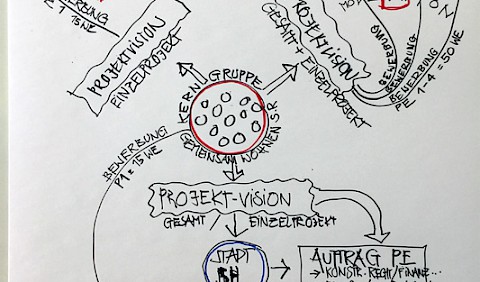 BEWERBUNG
15 WE
PROJEKTVISION
EINZELPROJEKT
PROJEKTVISION
GESAMT + EINZELPROJEKT
BEWERBUNG
BEWERBUNG
BEWERBUNG
PE 1-4 = 50 WE
KERN GRUPPE
GEMEINSAM WOHNEN SR
BEWERBUNG
P1 = 15 WE
PROJEKT-VISION
GESAMT/ EINZELPROJEKT
STADT
AUFTRAG PE
→ KONSTR. RECHT/FINANZ...